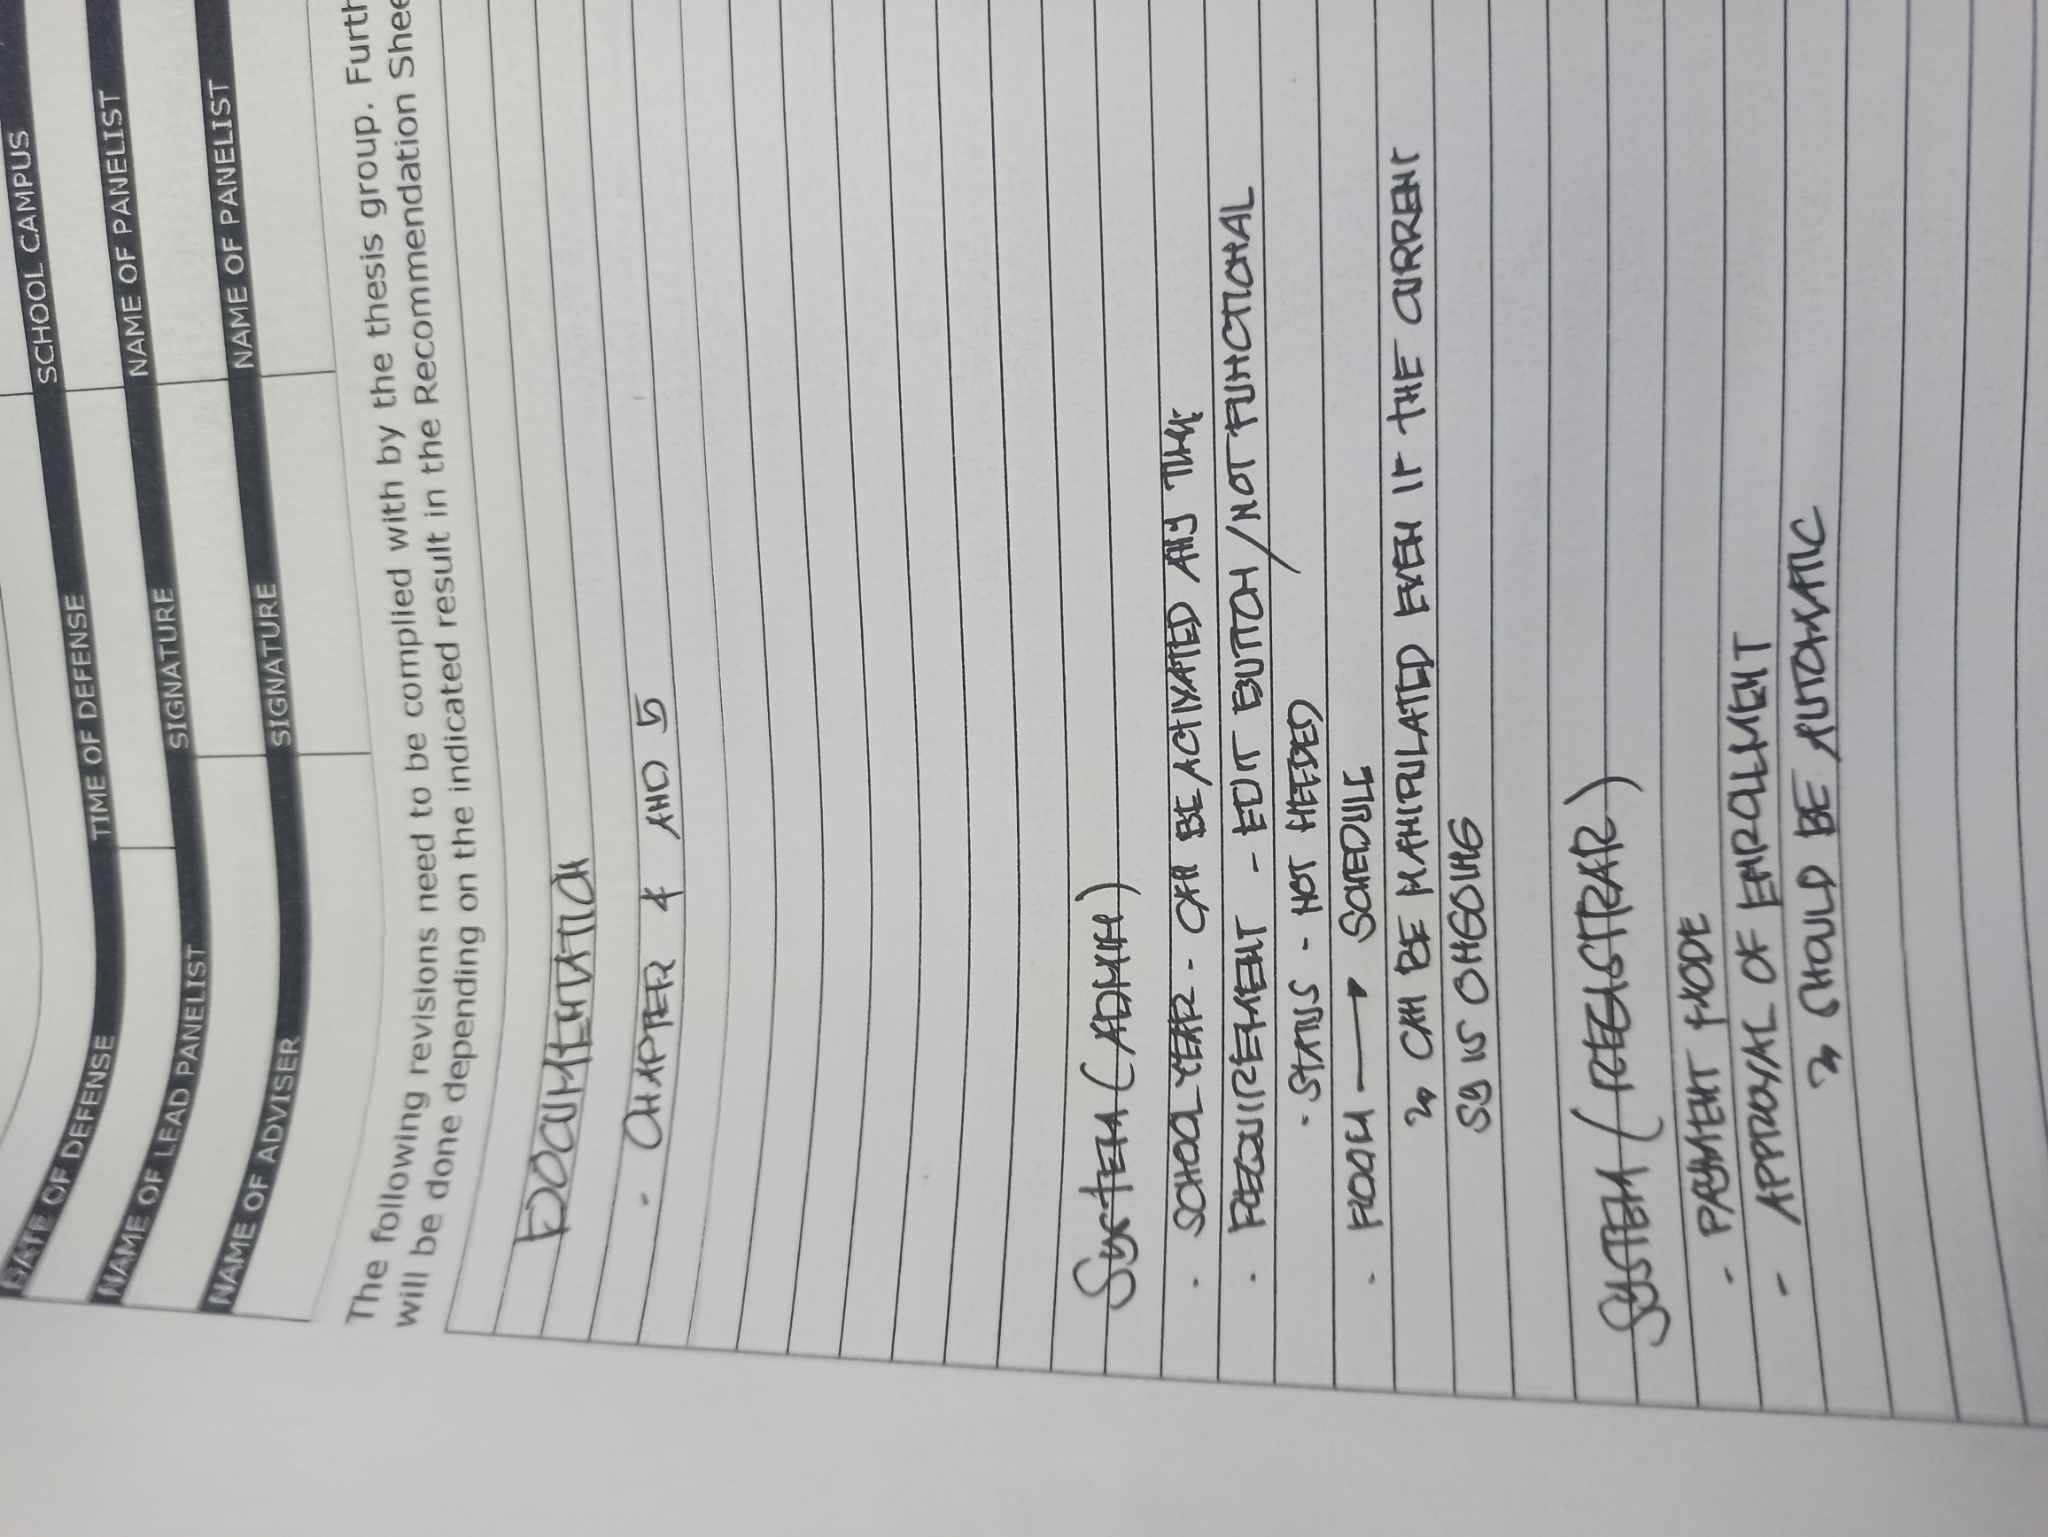 DATE OF DEFENSE TIME OF DEFENSE SCHOOL CAMPUS
NAME OF LEAD PANELIST SIGNATURE NAME OF PANELIST
NAME OF ADVISER SIGNATURE NAME OF PANELIST
The following revisions need to be complied with by the thesis group. Furth
will be done depending on the indicated result in the Recommendation Shee
DOCUMENTATION
- CHAPTER 4 AND 5
SYSTEM (ADMIN)
- SCHOOL YEAR - CAN BE ACTIVATED ANY TIME
- REQUIREMENT - EDIT BUTTON / NOT FUNCTIONAL
- STATUS - NOT NEEDED
- ROOM → SCHEDULE
↳ CAN BE MANIPULATED EVEN IF THE CURRENT
SY IS ONGOING
SYSTEM (REGISTRAR)
- PAYMENT MODE
- APPROVAL OF ENROLLMENT
↳ SHOULD BE AUTOMATIC